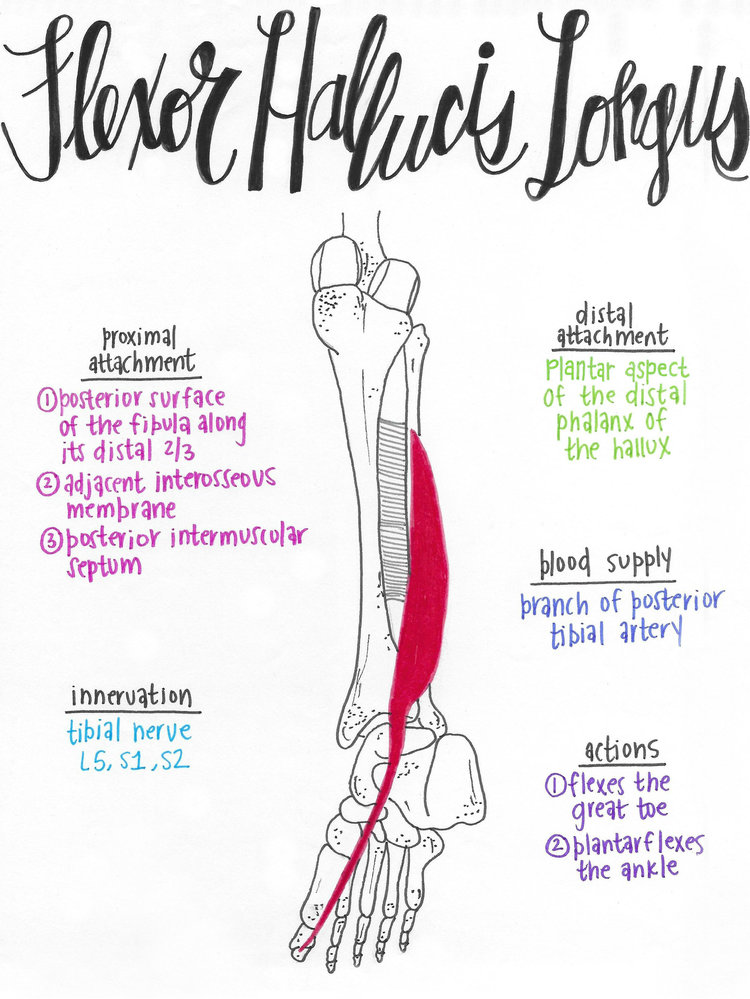 Flexor Hallucis Longus
proximal
attachment
① posterior surface
of the fibula along
its distal 2/3
② adjacent interosseous
membrane
③ posterior intermuscular
septum
innervation
tibial nerve
L5, S1, S2
distal
attachment
plantar aspect
of the distal
phalanx of
the hallux
blood supply
branch of posterior
tibial artery
actions
① flexes the
great toe
② plantarflexes
the ankle